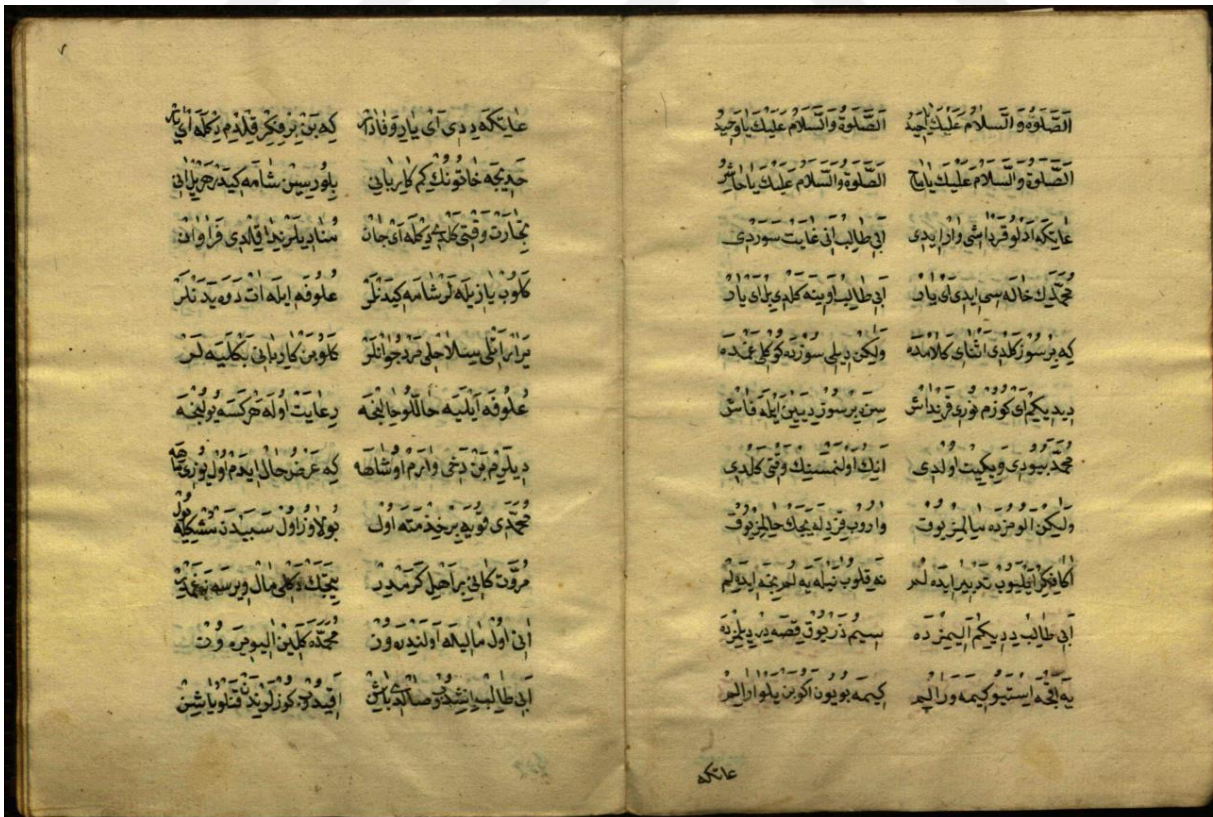 اَلصَّلٰوةُ وَ السَّلَامُ عَلَيْكَ اَحِيدُ اَلصَّلٰوةُ وَالسَّلَامُ عَلَيْكَ يَا وَحِيدُ
اَلصَّلٰوةُ وَالسَّلَامُ عَلَيْكَ يَا مَاحِ اَلصَّلٰوةُ وَالسَّلَامُ عَلَيْكَ يَا حَاشِرُ
عاتكه ادلو قرداشى وار ايدى ابى طالب انى غايت سوردى
محمدك خاله سى ايدى اى يار ابى طالب اوينه كلدى بل اى يار
كه بر سوز كلدى اثناى كلامده ولكن ديلى سوزده كوكلى غمده
ديديكم اى كوزم نورى قرنداش سن بر سوز ديين ايله فاش
محمد بيودى و يكيت اولدى انك اولنمسنك وقتى كلدى
وليكن الومزده مالمز يوق واروب قز دله يجك حالمز يوق
اكا فكر ايليوب تدبير ايده لم نه قلوب نيله يه لم نيجه ايده لم
ابى طالب ديديكم اليمزده سيم ذر يوق قصه در ديلمزده
يه اقچه استيو كيمه وارالم كيمه بويون اكوبن يلوارالم
عاتكه
٧
عاتكه ديدى اى يار وفادار كه بن بر فكر قلدم دكله اى يار
خديجه خاتونك كم كاربانى بلورسين شامه كيدر هر ييل انى
تجارت وقتى كلدى دكله اى جان مناديلر ندا قلدى فراوان
كلوب يازيله لر شامه كيدنلر علوفه ايله ات دوه يدنلر
يرار اتلى سلاحلى مرد جوانلر كلوبن كاربانى بكليه لر
علوفه ايليه حاللو حالنجه رعايت اوله هر كسه يولنجه
ديلرم بن دخى وارم اول شاهه كه عرض حال ايدم اول يوزى ماهه
محمدى قويه بر خذمته اول بولاوز اول سببدن مشكله يول
مروت كانى بر اهل كرمدر
انى اول ماليله اولندره وز محمده كلين اليويره وز
ابى طالب ايشدوب صالدى باشن اقيدوب كوزلرندن قنلو ياشن